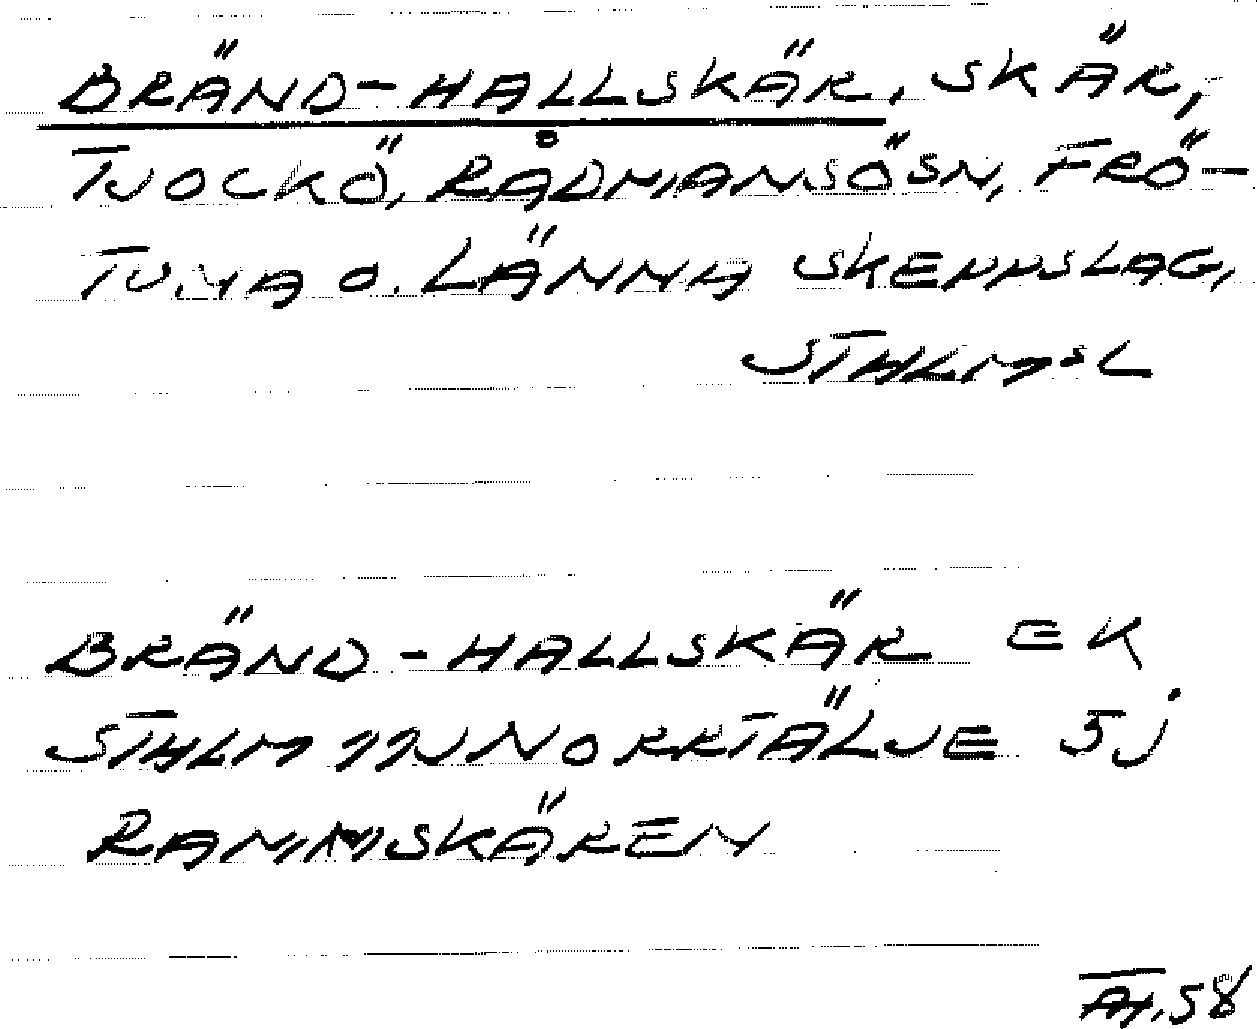 BRÄND-HALLSKÄR, SKÄR,
TJOCKÖ, RÅDMANSÖ SN, FRÖ-
TUNA O. LÄNNA SKEPPSLAG,
STHLMS L
BRÄND-HALLSKÄR EK
STHLM 11J NORRTÄLJE 5j
RAMMSKÄREN
58